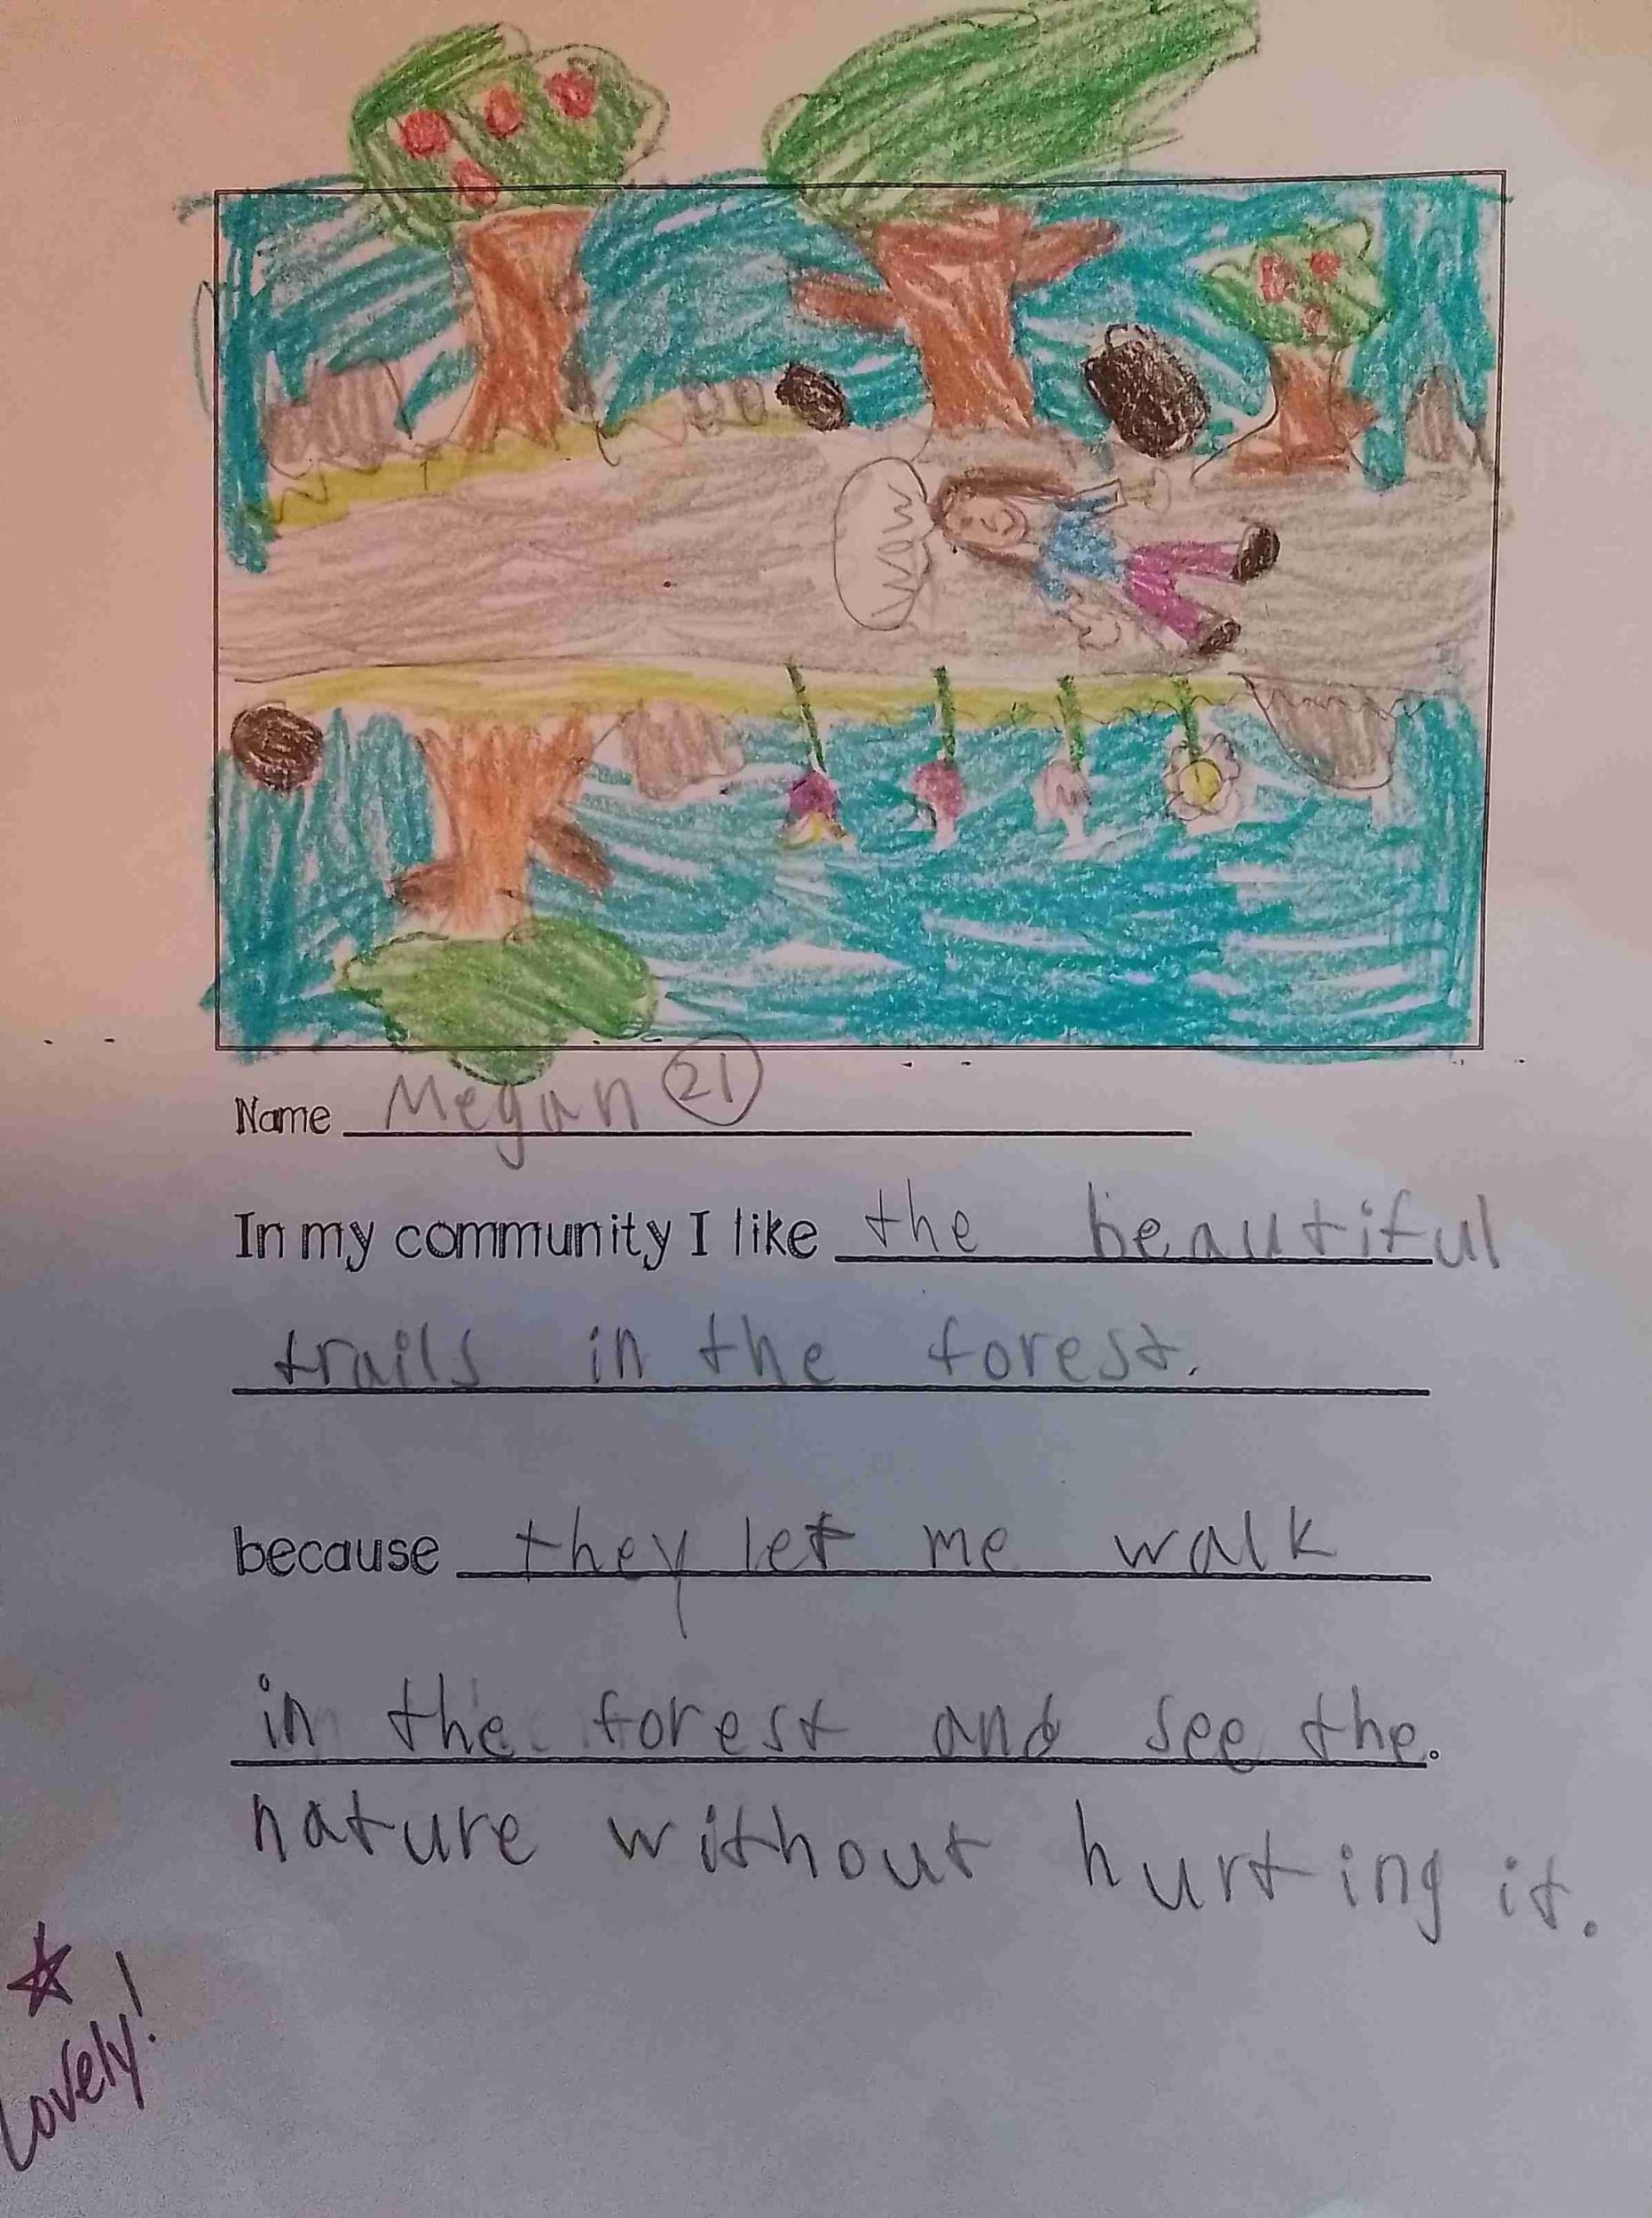 waw
Name Megan 21
In my community I like the beautiful
trails in the forest.
because they let me walk
in the forest and see the.
nature without hurting it.
Lovely!